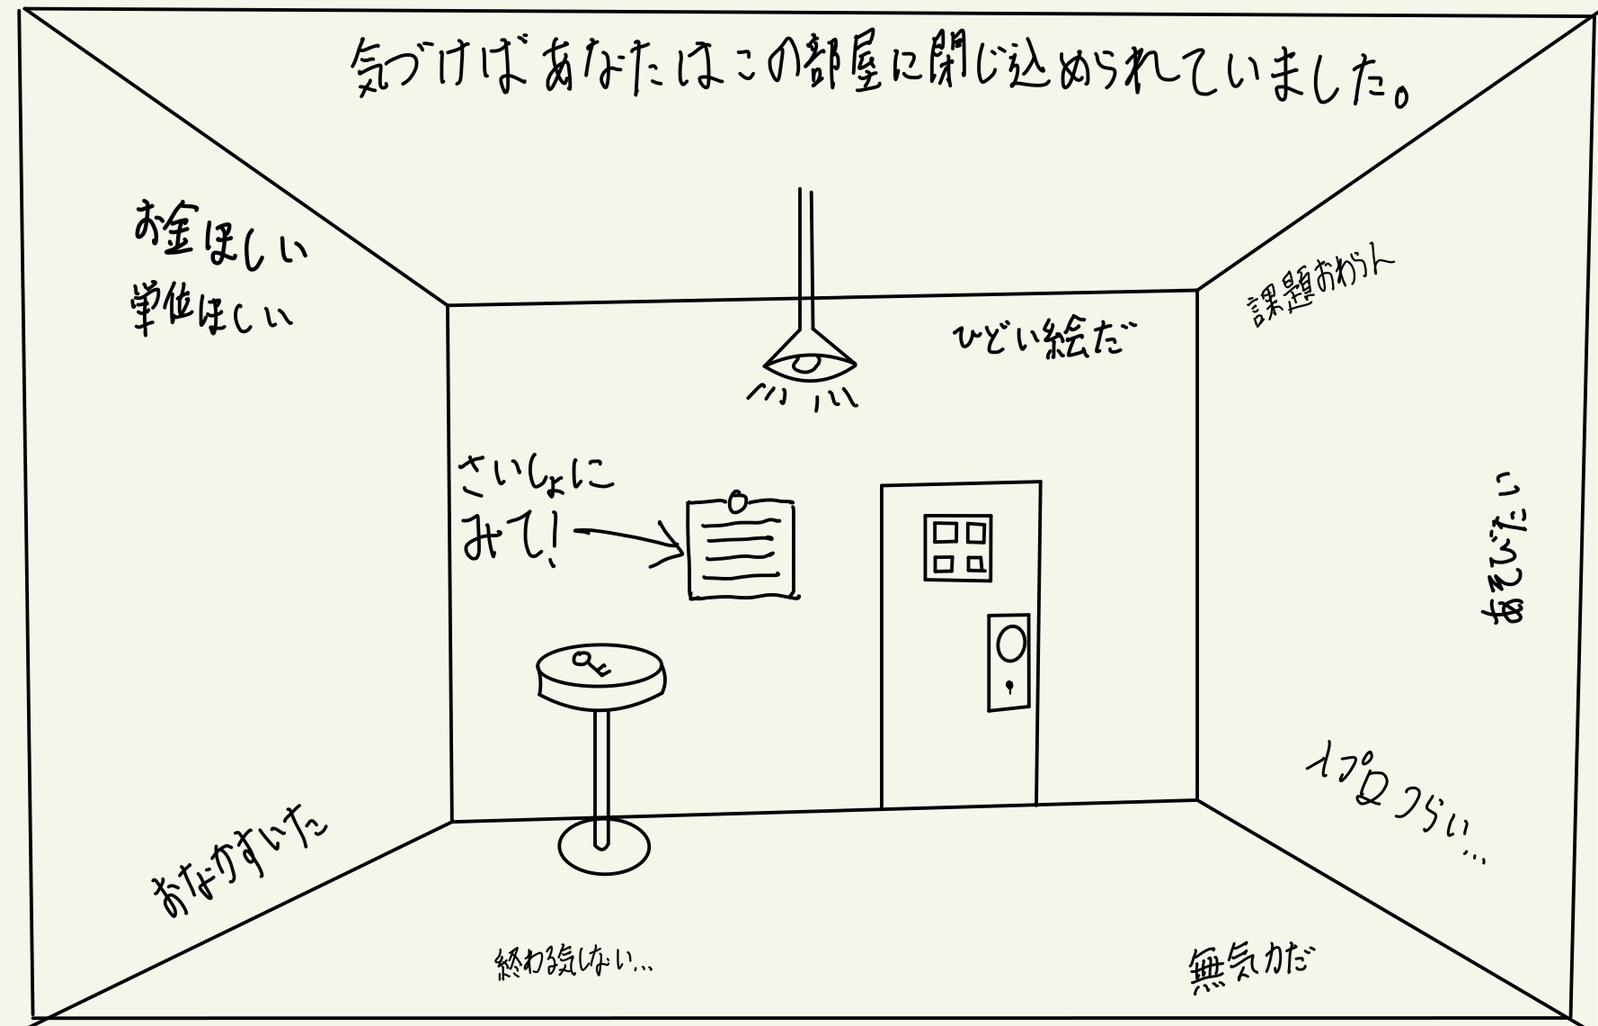 気づけばあなたはこの部屋に閉じ込められていました。
お金ほしい
単位ほしい
課題おわらん
ひどい絵だ
さいしょに
みて!
あそびたい
イプロつらい...
おなかすいた
終わる気しない...
無気力だ